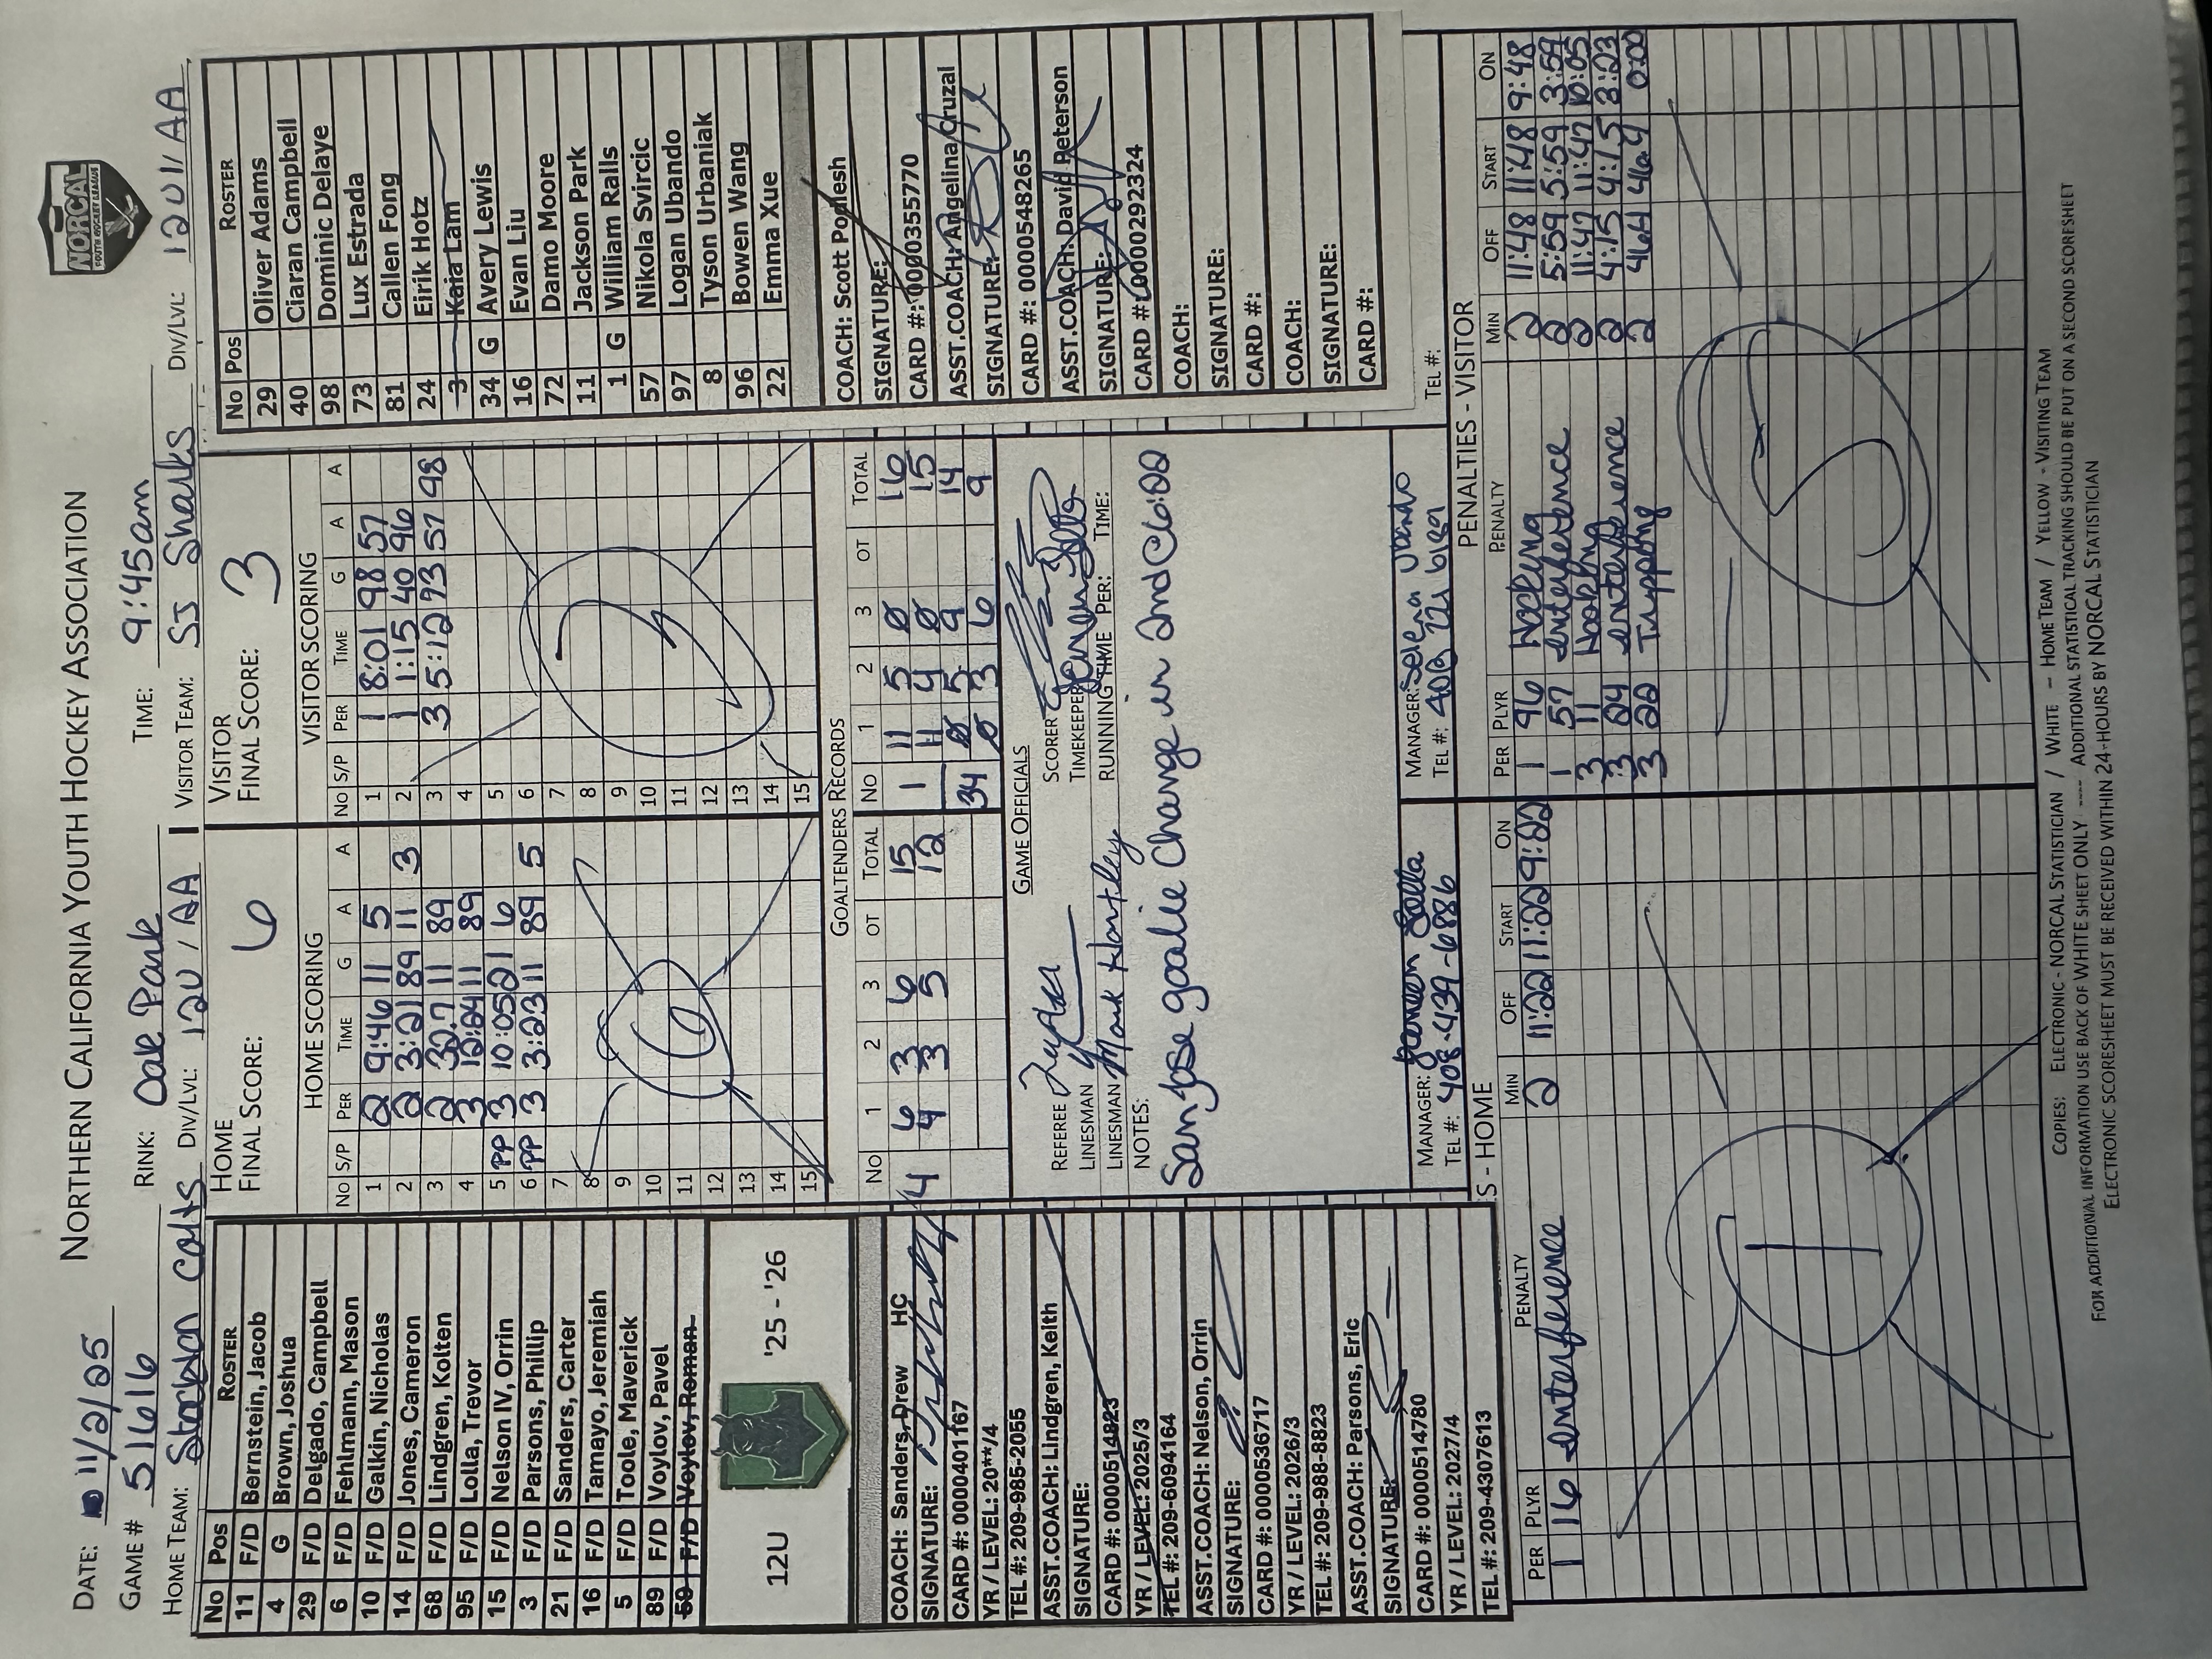 NORTHERN CALIFORNIA YOUTH HOCKEY ASSOCIATION
NORCAL
YOUTH HOCKEY LEAGUE
DATE: 11/2/25
GAME # 51616
RINK: Oak Park
TIME: 9:45am
HOME TEAM: Stockton Colts
DIV/LVL: 12U / AA
VISITOR TEAM: SJ Sharks
DIV/LVL: 12U / AA
No Pos ROSTER
11 F/D Bernstein, Jacob
4 G Brown, Joshua
29 F/D Delgado, Campbell
6 F/D Fehlmann, Mason
10 F/D Galkin, Nicholas
14 F/D Jones, Cameron
68 F/D Lindgren, Kolten
95 F/D Lolla, Trevor
15 F/D Nelson IV, Orrin
3 F/D Parsons, Phillip
21 F/D Sanders, Carter
16 F/D Tamayo, Jeremiah
5 F/D Toole, Maverick
89 F/D Voylov, Pavel
59 F/D Voylov, Roman
12U '25 - '26
COACH: Sanders, Drew HC
SIGNATURE:
CARD #: 0000401167
YR / LEVEL: 20**/4
TEL #: 209-985-2055
ASST.COACH: Lindgren, Keith
SIGNATURE:
CARD #: 0000514823
YR / LEVEL: 2025/3
TEL #: 209-6094164
ASST.COACH: Nelson, Orrin
SIGNATURE:
CARD #: 0000536717
YR / LEVEL: 2026/3
TEL #: 209-988-8823
ASST.COACH: Parsons, Eric
SIGNATURE:
CARD #: 0000514780
YR / LEVEL: 2027/4
TEL #: 209-4307613
HOME
FINAL SCORE: 6
HOME SCORING
No S/P PER TIME G A A
1 2 9:46 11 5
2 2 3:21 89 11 3
3 2 32.7 11 89
4 3 10:24 11 89
5 PP 3 10:05 21 6
6 PP 3 3:23 11 89 5
7
8
9
10
11
12
13
14
15
6
VISITOR
FINAL SCORE: 3
VISITOR SCORING
No S/P PER TIME G A A
1 1 8:01 98 57
2 1 1:15 40 96
3 3 5:12 93 57 98
4
5
6
7
8
9
10
11
12
13
14
15
3
GOALTENDERS RECORDS
No 1 2 3 OT TOTAL
4 6 3 6 15
4 3 5 12
No 1 2 3 OT TOTAL
1 11 5 Ø 16
11 4 Ø 15
34 Ø 5 9 14
Ø 3 6 9
GAME OFFICIALS
REFEREE
LINESMAN
LINESMAN Mark Hartley
SCORER
TIMEKEEPER
RUNNING TIME PER: TIME:
NOTES:
San Jose goalie Change in 2nd @ 6:22
MANAGER: Lolla
TEL #: 408-439-6886
MANAGER: Selena Ubando
TEL #: 408 221 6159
TEL #:
No Pos ROSTER
29 Oliver Adams
40 Ciaran Campbell
98 Dominic Delaye
73 Lux Estrada
81 Callen Fong
24 Eirik Hotz
3 Kaia Lam
34 G Avery Lewis
16 Evan Liu
72 Damo Moore
11 Jackson Park
1 G William Ralls
57 Nikola Svircic
97 Logan Ubando
8 Tyson Urbaniak
96 Bowen Wang
22 Emma Xue
COACH: Scott Podlesh
SIGNATURE:
CARD #: 0000355770
ASST.COACH: Angelina Cruzal
SIGNATURE:
CARD #: 0000548265
ASST.COACH: David Peterson
SIGNATURE:
CARD #: 0000292324
COACH:
SIGNATURE:
CARD #:
COACH:
SIGNATURE:
CARD #:
S - HOME
PER PLYR PENALTY MIN OFF START ON
1 16 Interference 2 11:22 11:22 9:22
1
PENALTIES - VISITOR
PER PLYR PENALTY MIN OFF START ON
1 96 Hooking 2 11:48 11:48 9:48
1 57 Interference 2 5:59 5:59 3:59
3 11 Hooking 2 11:47 11:47 10:05
3 24 Interference 2 4:15 4:15 3:23
3 22 Tripping 2 46.4 46.4 0:00
5
COPIES: ELECTRONIC - NORCAL STATISTICIAN / WHITE - HOME TEAM / YELLOW - VISITING TEAM
FOR ADDITIONAL INFORMATION USE BACK OF WHITE SHEET ONLY ---- ADDITIONAL STATISTICAL TRACKING SHOULD BE PUT ON A SECOND SCORESHEET
ELECTRONIC SCORESHEET MUST BE RECEIVED WITHIN 24-HOURS BY NORCAL STATISTICIAN